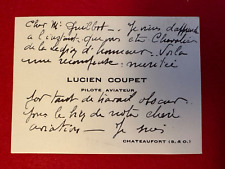 Cher Mr Guilbot - Je viens d'apprendre
à l'instant que vous êtes Chevalier
de la Légion d'honneur. Voilà
une récompense méritée
LUCIEN COUPET
PILOTE AVIATEUR
for tant de travail obscur
pour le de notre chère
aviation - Je suis
CHATEAUFORT (S. & O.)